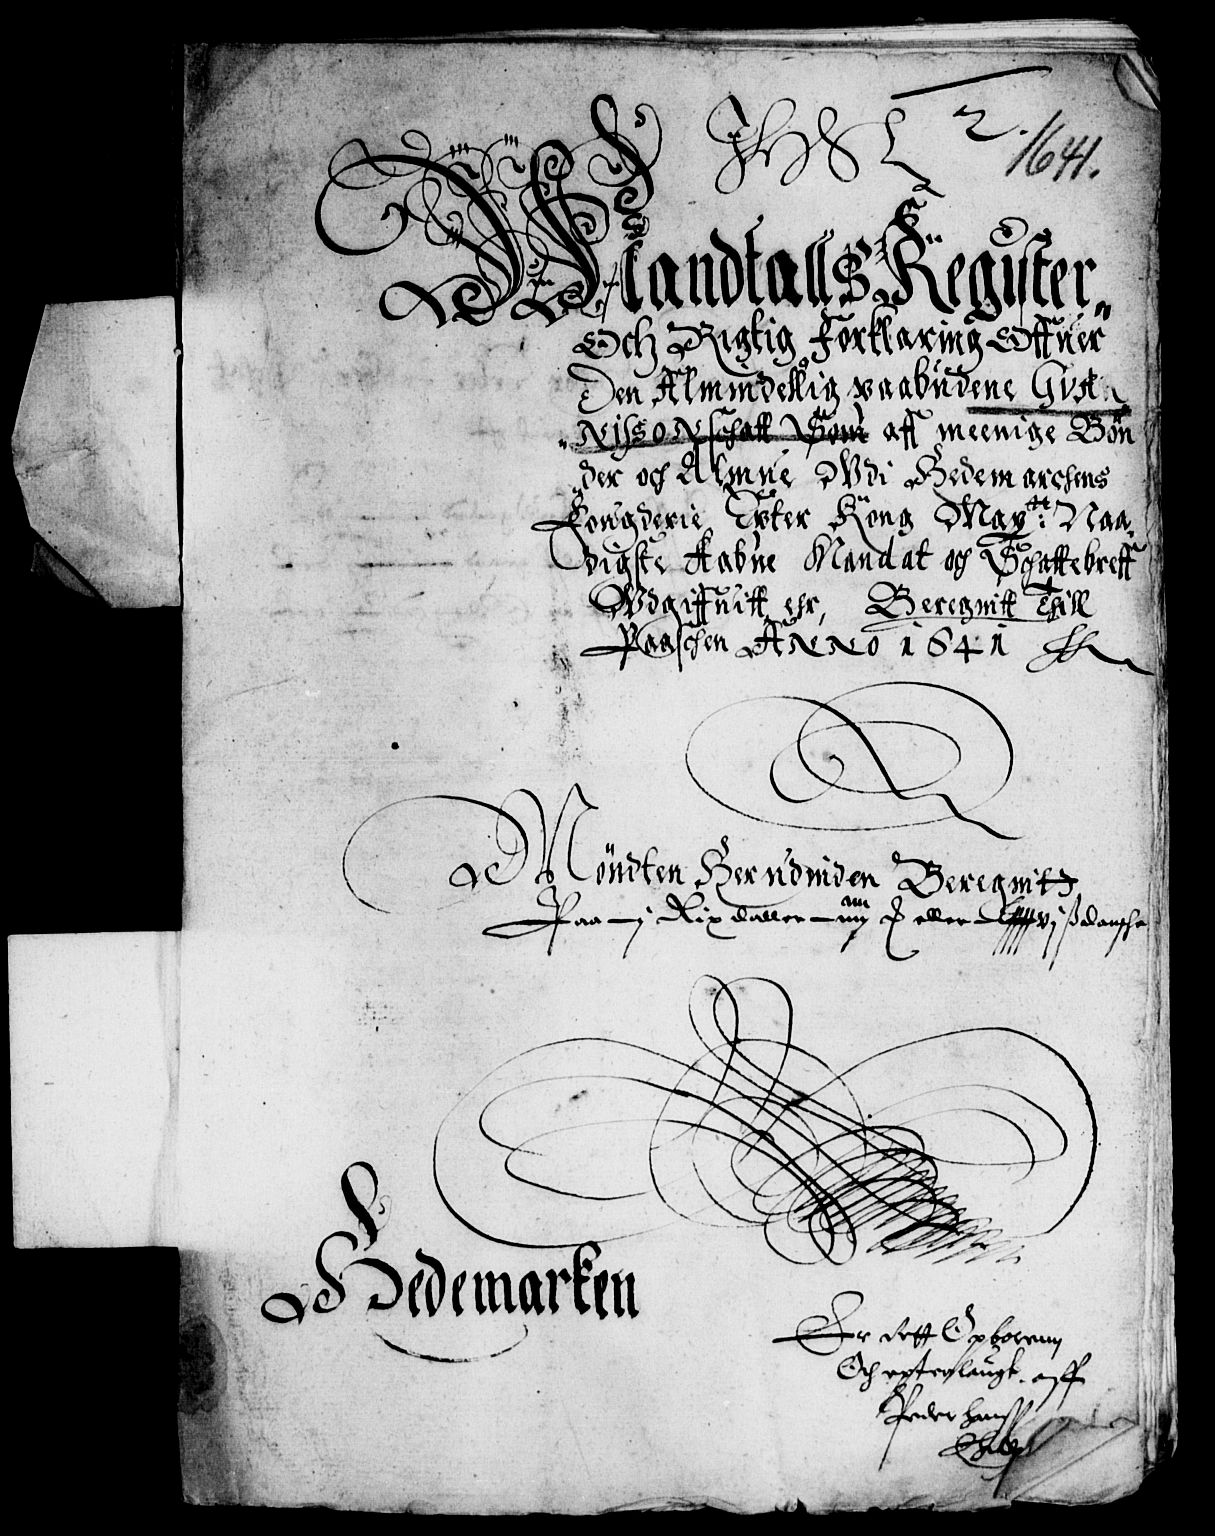 2. 1641.
Mandtalls Register
Och Rigtig Forklaring Offuer
Den Almindellig paabudene Gua
nisson schatt Som aff meenige Bøn
der och Almue Udi Hedemarchens
Fougderie Epter Kong Maytt: Naa
digste aabne Mandat och Schattebreff
Udgiffuitt ehr, Beregnitt Thill
Paaschen Anno 1641
Möndten Herudinden Beregnit
Paa j Rix daller eller danske
Hedemarken
Er rett Opboren
Och epter aff
Peder